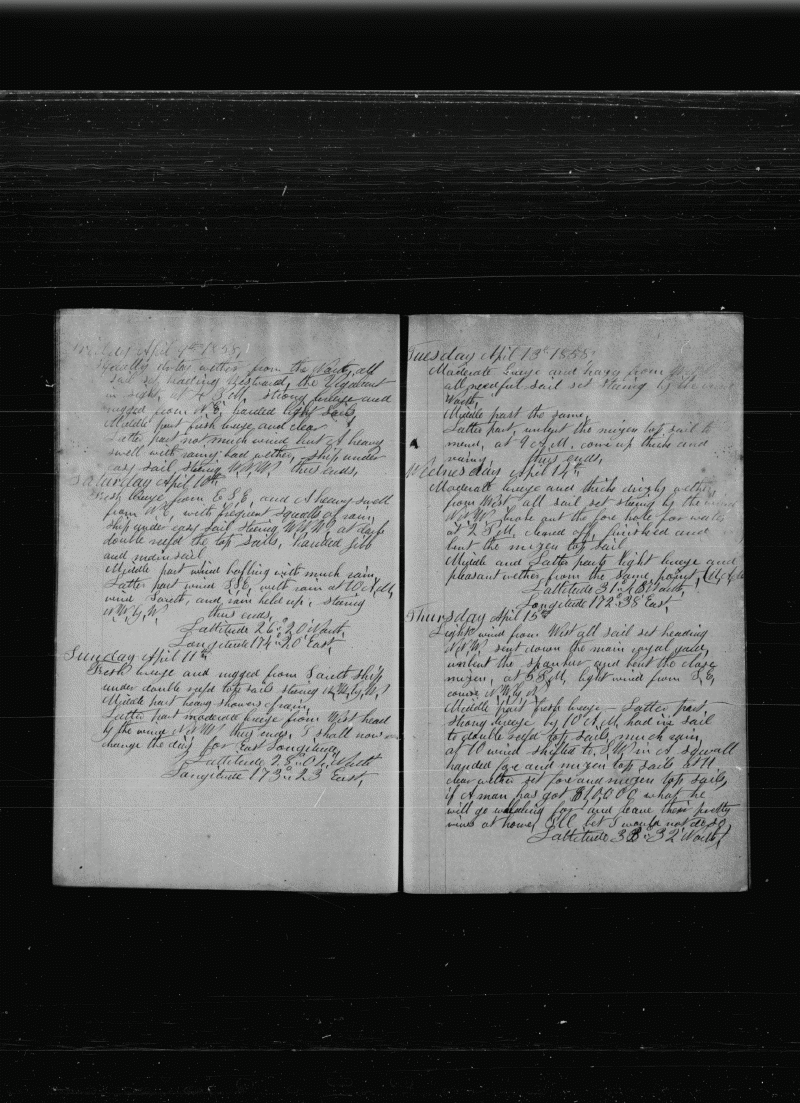 Friday April 9th 1858,
Squally dirty wether from the North, all
sail set heading Westward, the Vigalant
in sight, at 4 P.M, strong breeze and
rugged from N.E, handed light sails,
Middle part fresh breeze and clear
Latter part not much wind but A heavy
swell with rainy bad wether, ship under
easy sail, stering W.N.W, thus ends,
Saturday April 10th
Fresh breeze from E.S.E, and A heavy swell
from N.E, with frequent squalls of rain,
ship under easy sail stering W.N.W, at dark
double reefd the top sails, handed jibb
and main sail
Middle part wind baffling with much rain,
Latter part wind S.E, with rain at 10 A,M,
wind South, and rain held up, stering
N.W, by, W, thus ends,
Lattitude 26 " 20 North,
Longitude 174 " 20 East,
Sunday April 11th
Fresh breeze and rugged from South ship
under double reefd top sails stering N,W, by, W,
Middle part heavy showers of rain,
Latter part moderate breeze from West head
by the wind N.N.W, thus ends, I shall now
change the day for East Longitude,
Lattitude 28 " 04 North
Longitude 173 " 23 East,
Tuesday April 13th 1858,
Moderate breeze and heavy from
all needful sail set stering by the wind
North,
Middle part the same,
Latter part, unbent the mizen top sail to
mend, at 9 A,M, come up thick and
rainy, thus ends,
Wednesday April 14th
Moderate breeze and thick dirty wether
from West all sail set stering by the wind
N.N.W, broke out the fore hole for water
at 2 P,M, cleared off, finished and
bent the mizen top sail
Middle and Latter parts light breeze and
pleasant wether from the same point,
Lattitude 31 " 48 North,
Longitude 172 " 38 East,
Thursday April 15th
Light wind from West all sail set heading
N.N.W, sent down the main royal yard,
unbent the spanker and bent the close
mizen, at 5 P,M, light wind from S,E,
course N,W, by, N,
Middle part fresh breeze – Latter part –
strong breeze by 10 A,M, had in sail
to double reefd top sails, much rain,
at 10 wind shifted to S.W, in A squall
handed fore and mizen top sails at 11
clear wether set fore and mizen top sails,
if A man has got $10,000 what he
will go whaling for and leave their pretty
wives at home, but I would not do so
Lattitude 33 " 32 North,